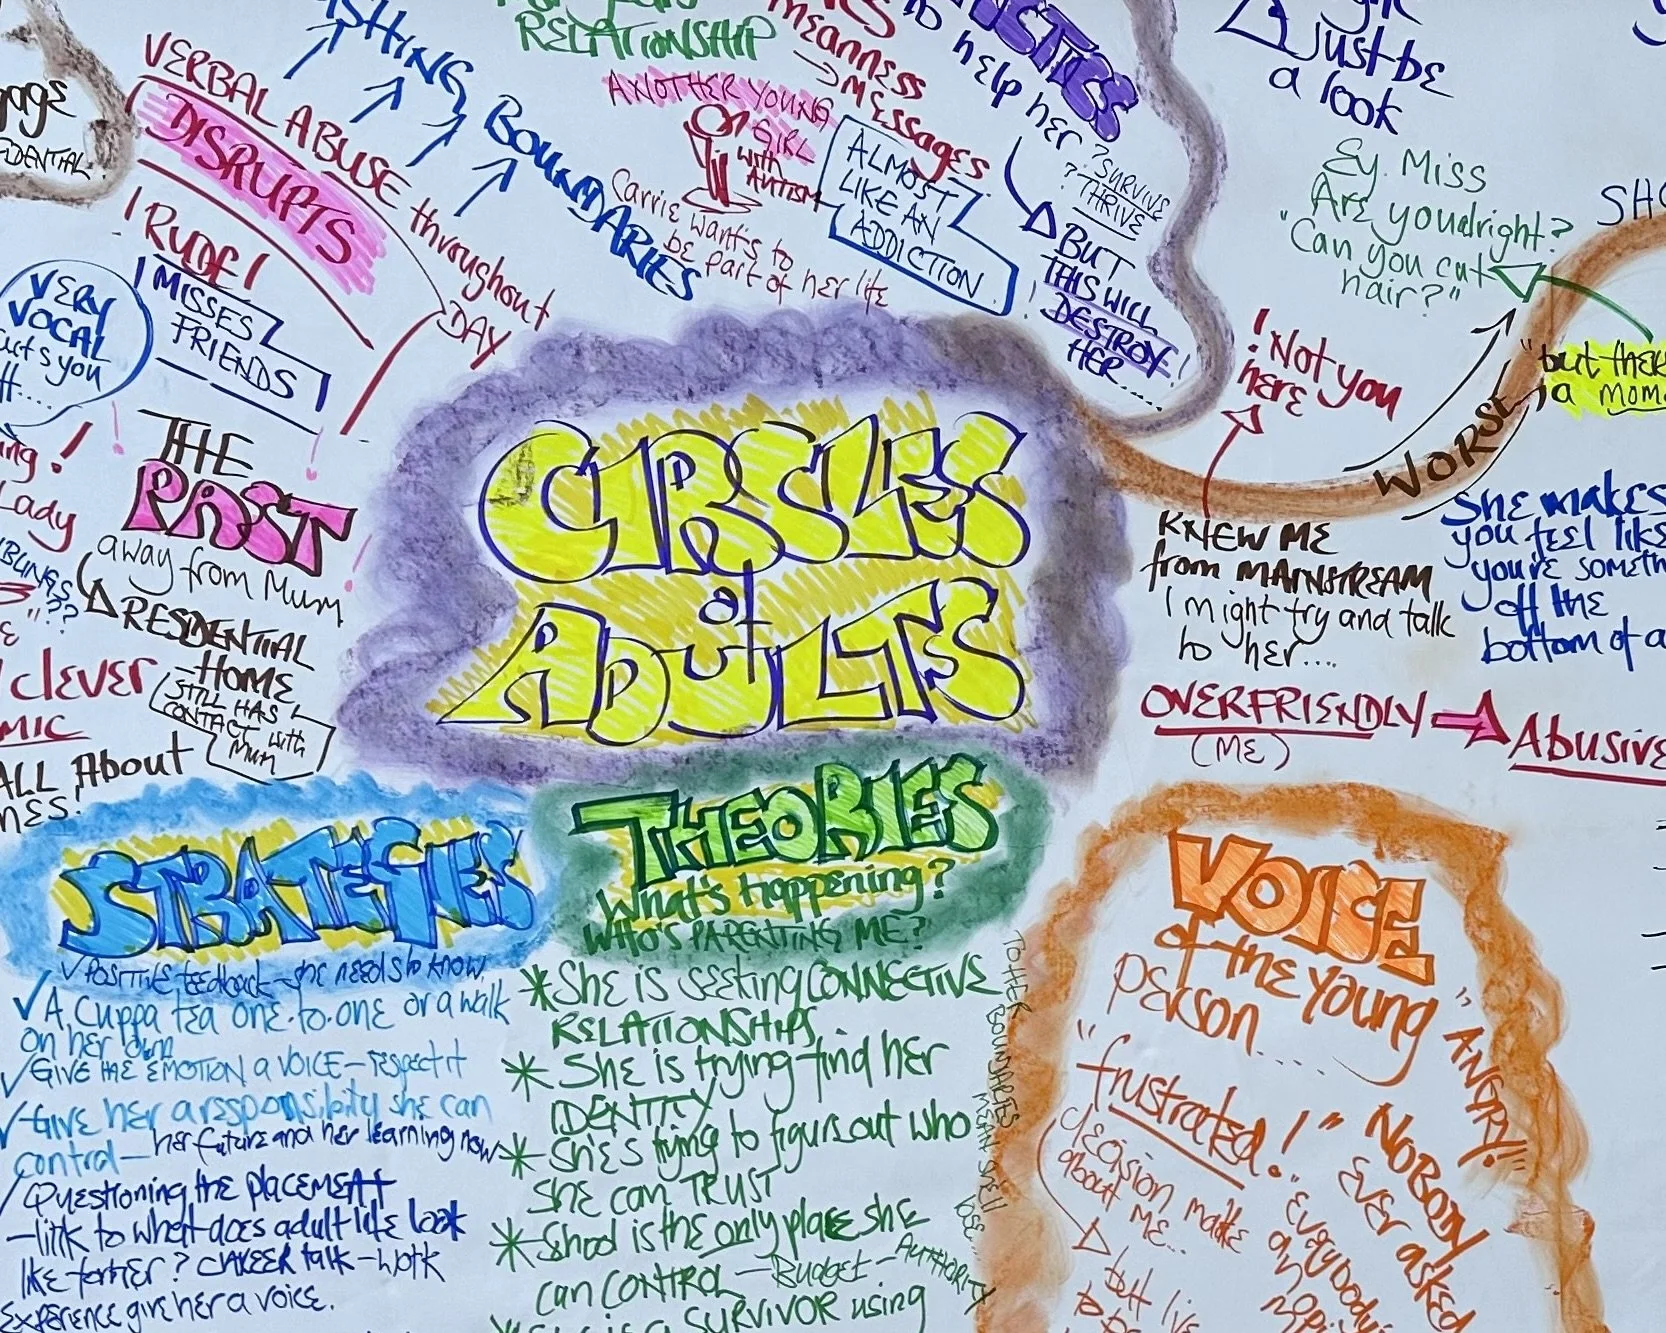 RELATIONSHIP
MEANNESS
→ MESSAGES
to help her
JUST BE
a look
VERBAL ABUSE throughout
DAY
DISRUPTS
! RUDE!
MISSES
FRIENDS
VERY
VOCAL
BOUNDARIES
ANOTHER YOUNG
GIRL
with
AUTISM
Carrie wants to
be part of her life
ALMOST
LIKE AN
ADDICTION
? SURVIVE
? THRIVE
BUT
THIS WILL
DESTROY
HER...
Ey. Miss
Are youalright?
"Can you cut
hair?"
! Not you
here
WORSE
"but there
a mom
THE
PAST
away from Mum
RESIDENTIAL
HOME
STILL HAS
CONTACT with
Mum
Lady
clever
ALL About
CIRCLES
of
ADULTS
KNEW ME
from MAINSTREAM
I might try and talk
to her....
She makes
you feel like
you're someth
off the
bottom of a
OVERFRIENDLY
(ME)
Abusive
STRATEGIES
✓ POSITIVE feedback - she needs to know.
✓ A cuppa tea one-to-one or a walk
on her own
✓ GIVE THE EMOTION a VOICE - respect it
✓ Give her a responsibility she can
control - her future and her learning now
Questioning the placement
- link to what does adult life look
like for her? CAREER talk - work
experience give her a voice.
THEORIES
What's Happening?
WHO'S PARENTING ME?
* She is seeking CONNECTIVE
RELATIONSHIPS
* She is trying find her
IDENTITY
* She's trying to figure out who
she can TRUST
* School is the only place she
can CONTROL - Budget - AUTHORITY
is a SURVIVOR using
VOICE
of the young
person....
"ANGRY!"
"frustrated!"
decision make
about ME...
NOBODY
EVER asked
"Everybody